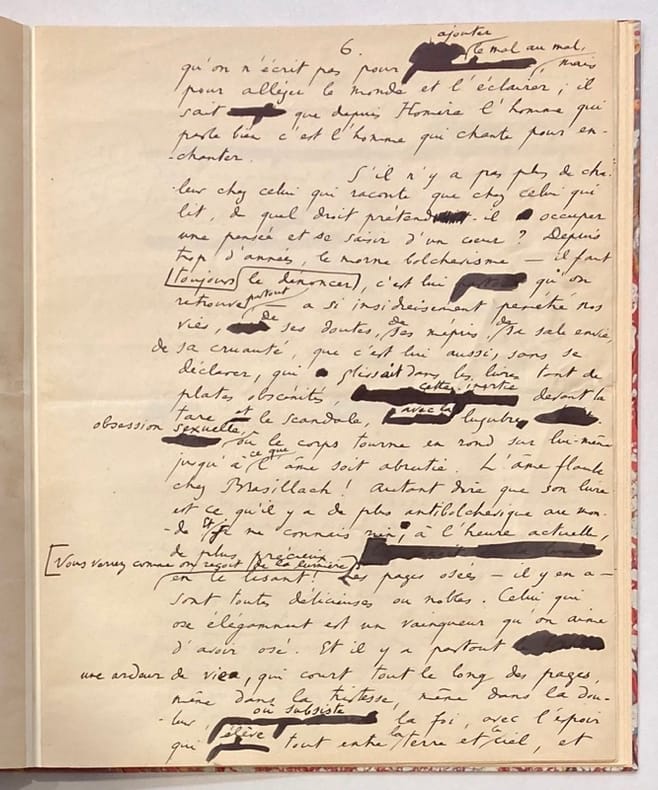 6.
ajouter
qu'on n'écrit pas pour le mal au mal, mais
pour alléger le monde et l'éclairer ; il
sait que depuis Homère l'homme qui
parle bien c'est l'homme qui chante pour en-
-chanter.
S'il n'y a pas plus de cha-
-leur chez celui qui raconte que chez celui qui
lit, de quel droit prétend-il occuper
une pensée et se saisir d'un cœur ? Depuis
trop d'années, le morne bolchevisme — il faut
toujours le dénoncer, c'est lui qu'on
retrouve partout — a si insidieusement pénétré nos
vies, de ses doutes, de ses mépris, de sa sale envie,
de sa cruauté, que c'est lui aussi, sans se
déclarer, qui glissait dans les livres tant de
plates obscénités, cette inertie devant la
tare et le scandale, avec la lugubre
obsession sexuelle,
où le corps tourne en rond sur lui-même
jusqu'à ce que l'âme soit abrutie. L'âme flambe
chez Brasillach ! Autant dire que son livre
est ce qu'il y a de plus antibolchevique au mon-
-de et je ne connais rien, à l'heure actuelle,
de plus précieux
[Vous verrez comme on reçoit de la lumière
en le lisant ! Les pages osées — il y en a —
sont toutes délicieuses ou nobles. Celui qui
ose élégamment est un vainqueur qu'on aime
d'avoir osé. Et il y a partout
une ardeur de vie, qui court tout le long des pages,
même dans la tristesse, même dans la dou-
-leur, où subsiste la foi, avec l'espoir
qui élève tout entre la terre et le ciel, et